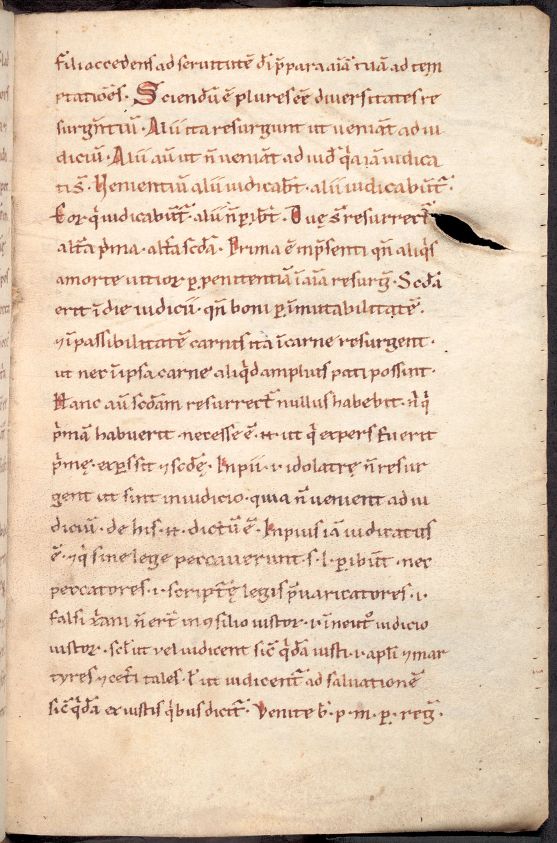 fili accedens ad seruitutē dī p̄para aīā tuā ad tem
ptatiōēs. Sciendū ē plures eē diuersitates re
surgētiū. Alii ita resurgunt ut ueniāt ad iu
diciū. Alii aū ut n̄ ueniāt ad iud̄ q̄ iā iudica
ti s̄. Venientiū alii iudicabt̄. alii iudicabūt̄.
Eor q̄ iudicabūt̄. alii n̄ ꝑibt̄. Duę s̄ resurrect̄
alt̄a p̄ma. alt̄a scđa. Prima ē in p̄senti qn̄ aliq̄s
a morte uitior ꝑ penitentiā ī aīa resurḡ. Scđa
erit ī die iudicii. qn̄ boni ꝑ īmutabilitatē.
⁊ īpassibilitatē carnis ita ī carne resurgent.
ut nec ī ipsa carne aliq̄d amplius pati possint.
Hanc aū scđam resurrect̄ nullus habebit. n̄ q̄
p̄mā habuerit. necesse ē. n. ut q̄ expers fuerit
p̄mę. expers sit ⁊ scđę. Inpii. i. idolatrę n̄ resur
gent ut sint in iudicio. quia n̄ uenient ad iu
diciū. de his. n. dictū ē. Inpius iā iudicatus
ē. ⁊ q̄ sine lege peccauerunt. s. l. ꝑibūt. nec
peccatores. i. scriptę legis p̄uaricatores. i.
falsi x̄ani n̄ ert̄ in ɔsilio iustor. i. ī uent̄o iudicio
iustor. sc̄l ut uel iudicent sic̄ q̄dā iusti. i. apl̄i ⁊ mar
tyres ⁊ cet̄i tales. l̄ ut iudicent̄ ad saluationē
sic̄ q̄dā ex iustis q̄bus dicit̄. Venite b̄. p. m. ꝑ. reḡ.